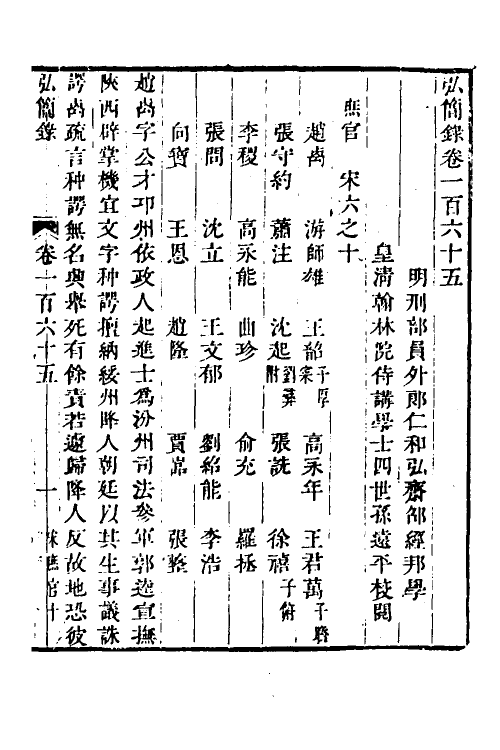 弘簡錄卷一百六十五
明刑部員外郎仁和弘齋邵經邦學
皇清翰林院侍講學士四世孫遠平校閱
庶官 宋六之十
趙卨 游師雄 王韶子厚 寀 高永年 王君萬子贍
張守約 蕭注 沈起劉彝附 張詵 徐禧子俯
李稷 高永能 曲珍 俞充 羅拯
張問 沈立 王文郁 劉紹能 李浩
向寶 王恩 趙隆 賈嵓 張整
趙卨字公才邛州依政人起進士爲汾州司法參軍郭逵宣撫
陝西辟掌機宜文字种諤擅納綏州降人朝廷以其生事議誅
諤卨疏言种諤無名興舉死有餘責若遽歸降人反故地恐彼
弘簡錄 卷一百六十五 一 宋庶官十